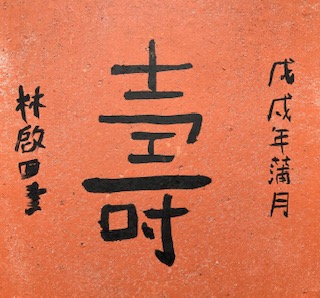 戊戌年蒲月
壽
林啟四書